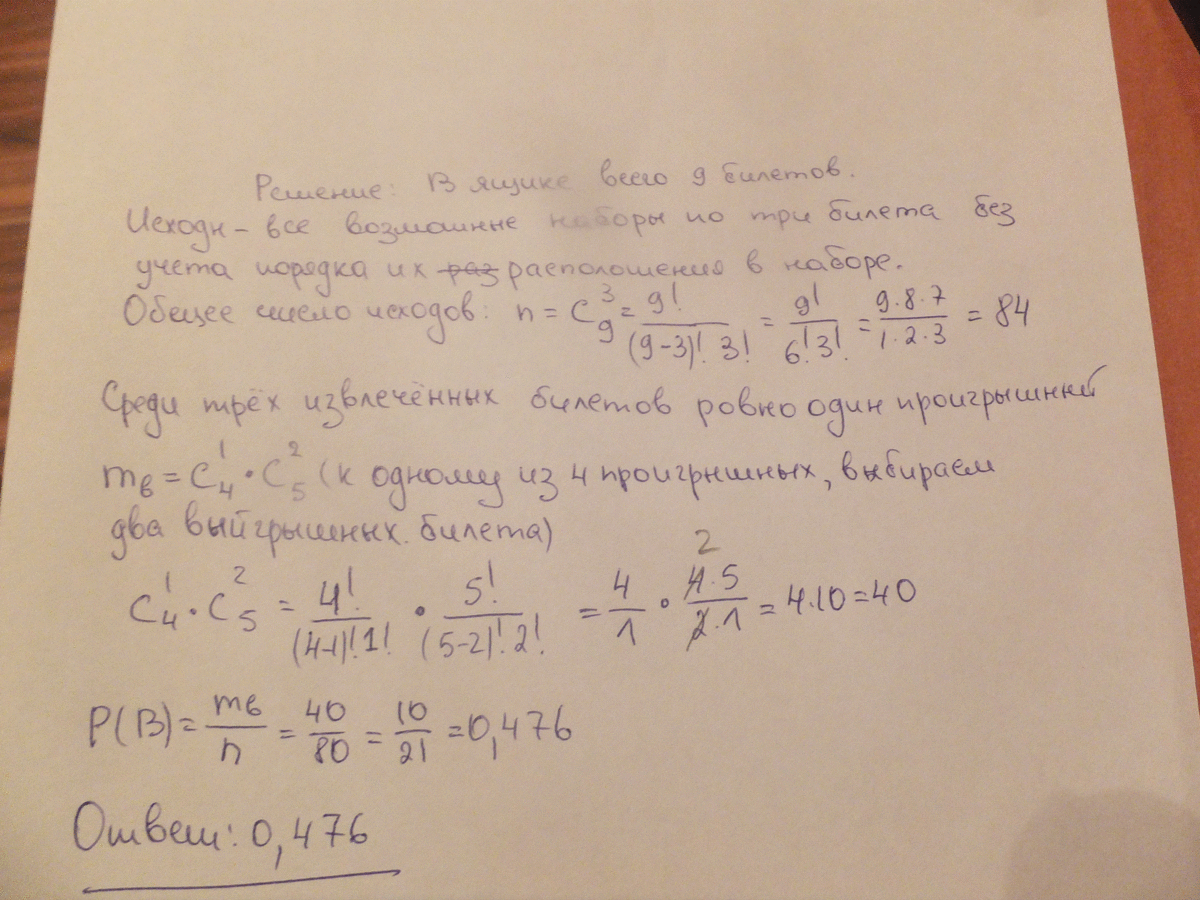 Решение: В ящике всего 9 билетов.
Исходы - все возможные наборы по три билета без
учета порядка их раз расположения в наборе.
Общее число исходов: n = C₉³ = 9!/((9-3)! 3!) = 9!/(6! 3!) = (9·8·7)/(1·2·3) = 84
Среди трёх извлечённых билетов ровно один проигрышный
mв = C₄¹ · C₅² (к одному из 4 проигрышных, выбираем
два выйгрышных. билета)
C₄¹ · C₅² = 4!/((4-1)! 1!) · 5!/((5-2)! 2!) = 4/1 · (4·5)/(2·1) = 4·10 = 40
2
P(B) = mв/n = 40/80 = 10/21 = 0,476
Ответ: 0,476